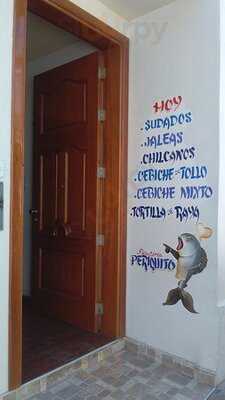 HOY
.SUDADOS
.JALEAS
.CHILCANOS
.CEBICHE DE TOLLO
.CEBICHE MIXTO
.TORTILLA DE RAYA
PERIQUITO